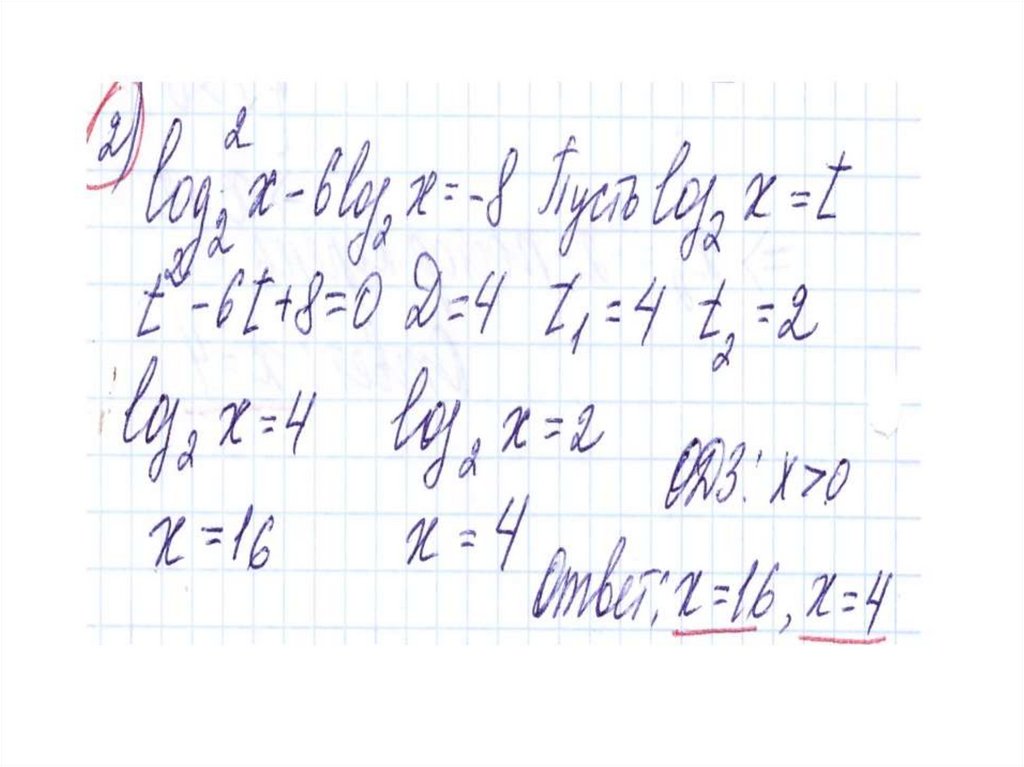 2) log₂² x - 6log₂ x = -8 Пусть log₂ x = t
t² - 6t + 8 = 0 D = 4 t₁ = 4 t₂ = 2
log₂ x = 4 log₂ x = 2
ОДЗ: x > 0
x = 16 x = 4
Ответ: x = 16, x = 4